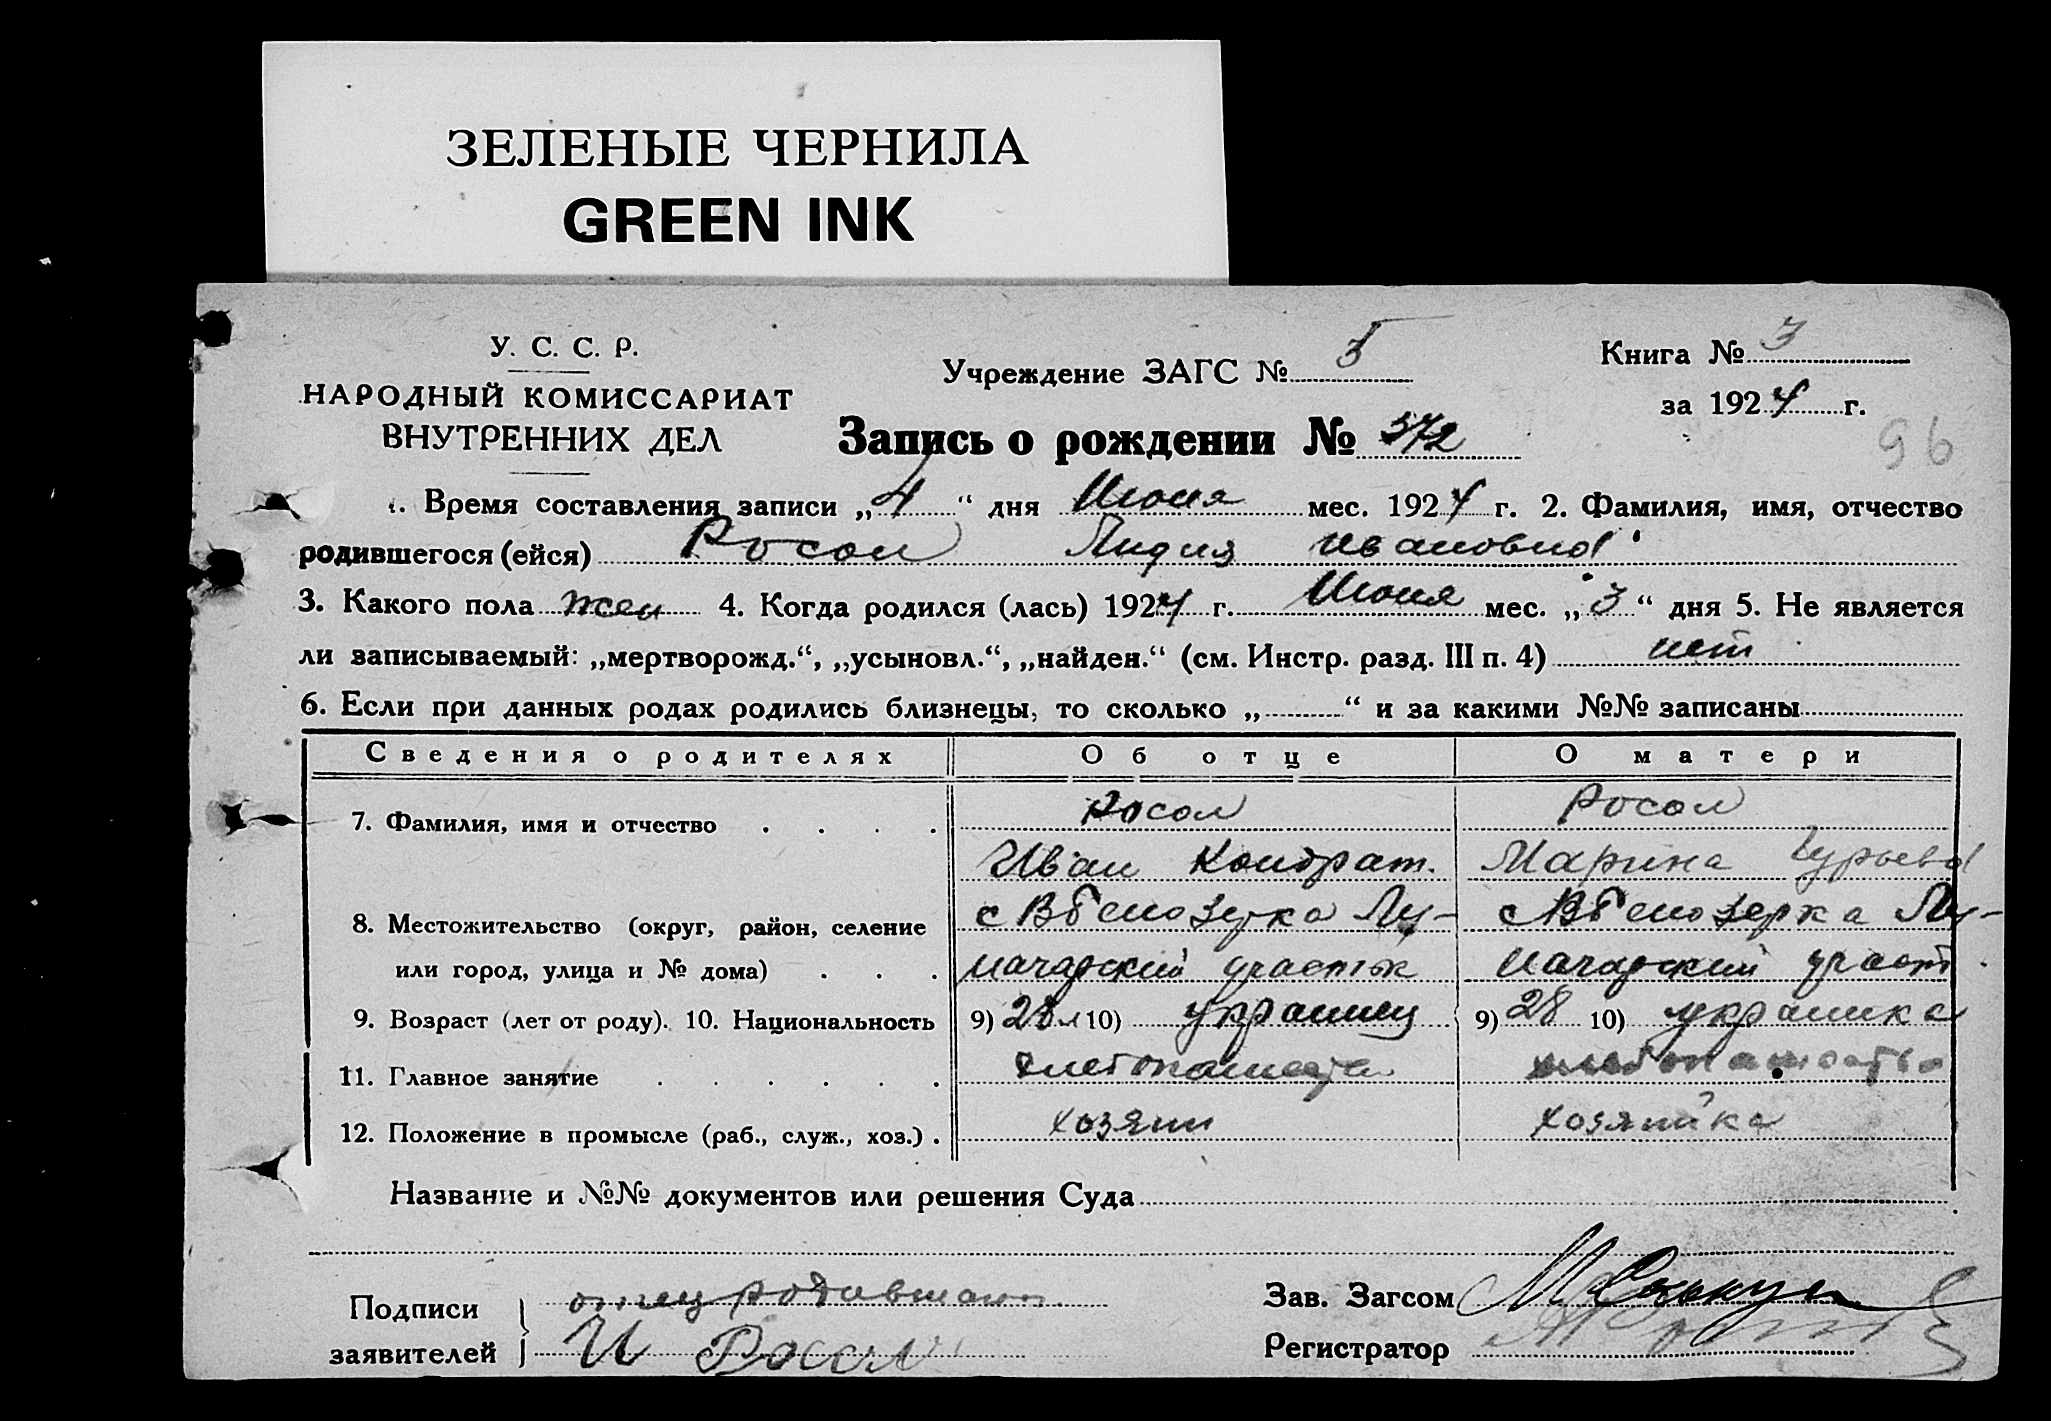 ЗЕЛЕНЫЕ ЧЕРНИЛА
GREEN INK
У. С. С. Р.
НАРОДНЫЙ КОМИССАРИАТ
ВНУТРЕННИХ ДЕЛ
Учреждение ЗАГС №
Книга № 3
за 1924 г.
Запись о рождении № 372
96
1. Время составления записи „4“ дня Июня мес. 1924 г. 2. Фамилия, имя, отчество
родившегося (ейся) Росол Лидия Ивановна
3. Какого пола жен 4. Когда родился (лась) 1924 г. Июня мес. „3“ дня 5. Не является
ли записываемый: „мертворожд.“, „усыновл.“, „найден.“ (см. Инстр. разд. III п. 4) нет
6. Если при данных родах родились близнецы, то сколько „ “ и за какими №№ записаны
Сведения о родителях Об отце О матери
7. Фамилия, имя и отчество Росол Росол
Иван Кондрат. Марина Гурьевна
8. Местожительство (округ, район, селение с В Белозерка Лу- с В Белозерка Лу-
или город, улица и № дома) начарский участок начарский участ.
9. Возраст (лет от роду). 10. Национальность 9) 28 л 10) украинец 9) 28 10) украинка
11. Главное занятие хлебопашество хлебопашество
12. Положение в промысле (раб., служ., хоз.) хозяин хозяйка
Название и №№ документов или решения Суда
Подписи отец Зав. Загсом
заявителей И Росол Регистратор